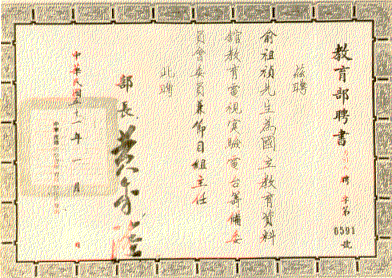 教育部聘書
聘字第6591號
茲聘
俞祖禎先生為國立教育資料
館教育電視實驗電台籌備委
員會委員兼節目組主任
此聘
部長黃季陸
中華民國五十一年一月 日